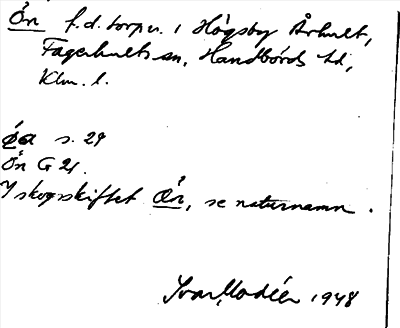 Ön f.d. torp u. i Högsby Århult,
Fagerhults sn, Handbörds hd,
Klm. l.
öa s. 29
Ön G 21.
I skogsskiftet Ön, se naturnamn.
Ivar Modéer 1948